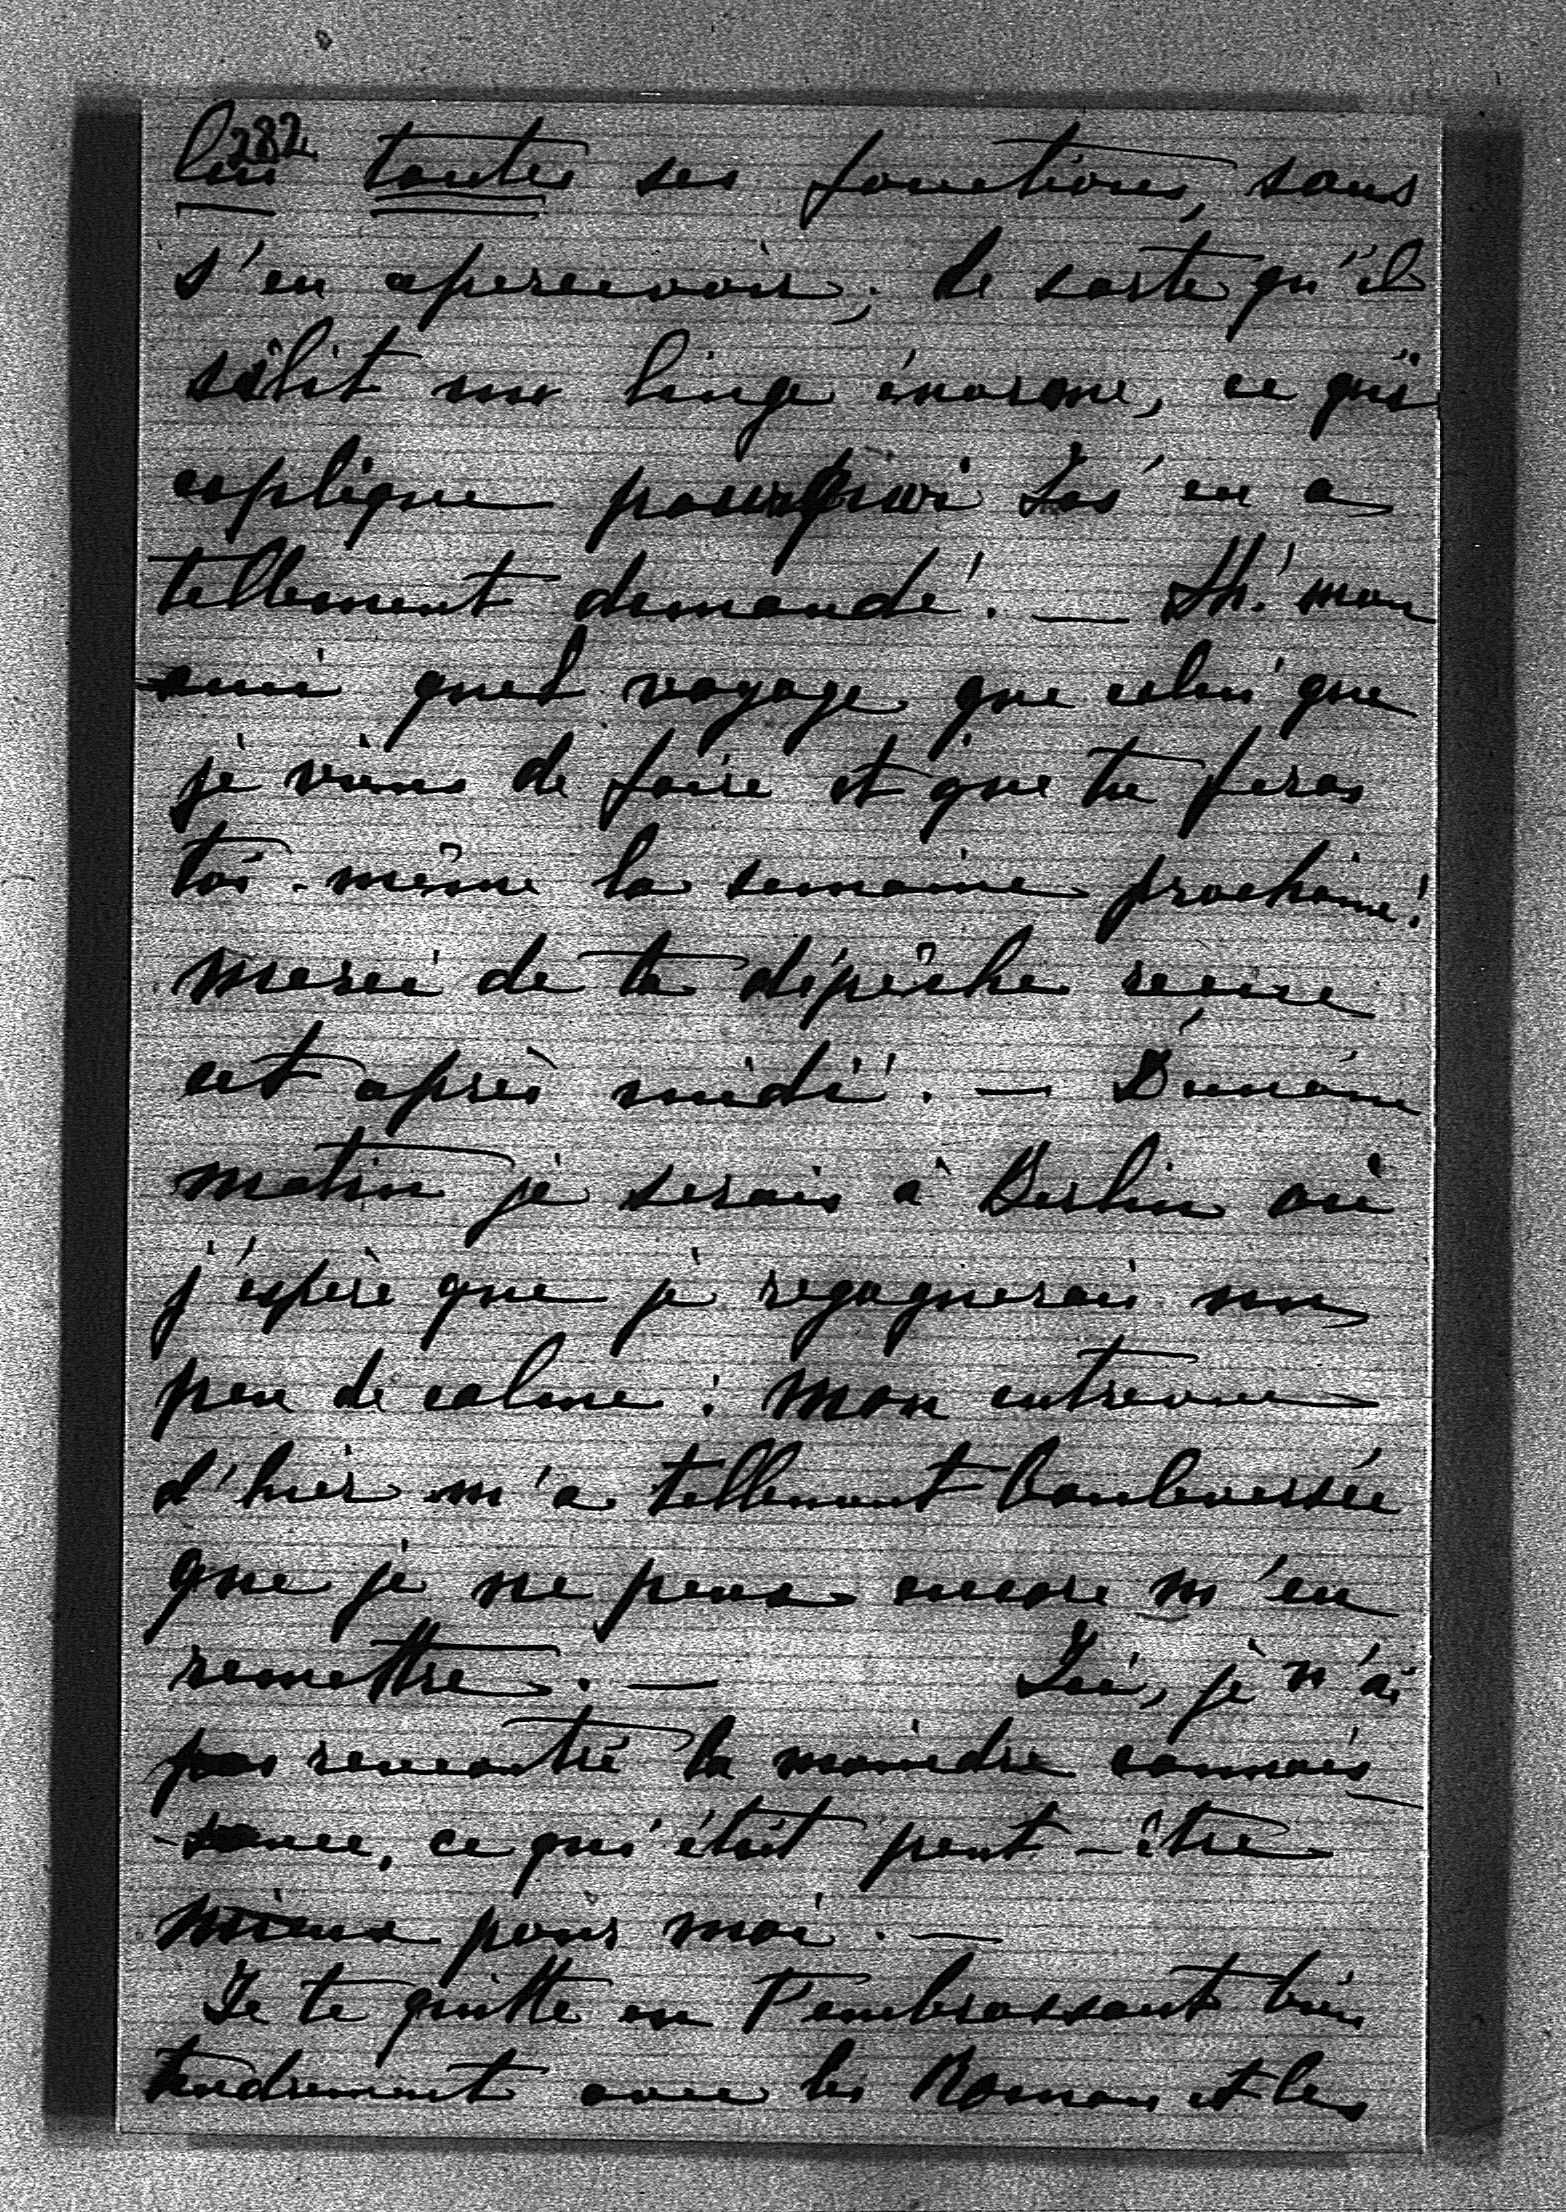 282
lui toutes ses fonctions, sans
s'en apercevoir; de sorte qu'il
sâlit un linge énorme, ce qui
esplique pourquoi Jos en a
tellement demandé. — Ah! mon
ami quel voyage que celui que
je viens de faire et que tu feras
toi-même la semaine prochaine!
Merci de ta dépêche reçue
cet après midi. — Demain
matin je serais à Berlin où
j'espère que je regagnerais un
peu de calme: Mon entrevue
d'hier m'a tellement bouleversée
que je ne peux encore m'en
remettre. — Ici, je n'ai
pas rencontré la moindre connais
-sance, ce qui était peut-être
mieux pour moi. —
Je te quitte en t'embrassant bien
tendrement avec les Roman et les